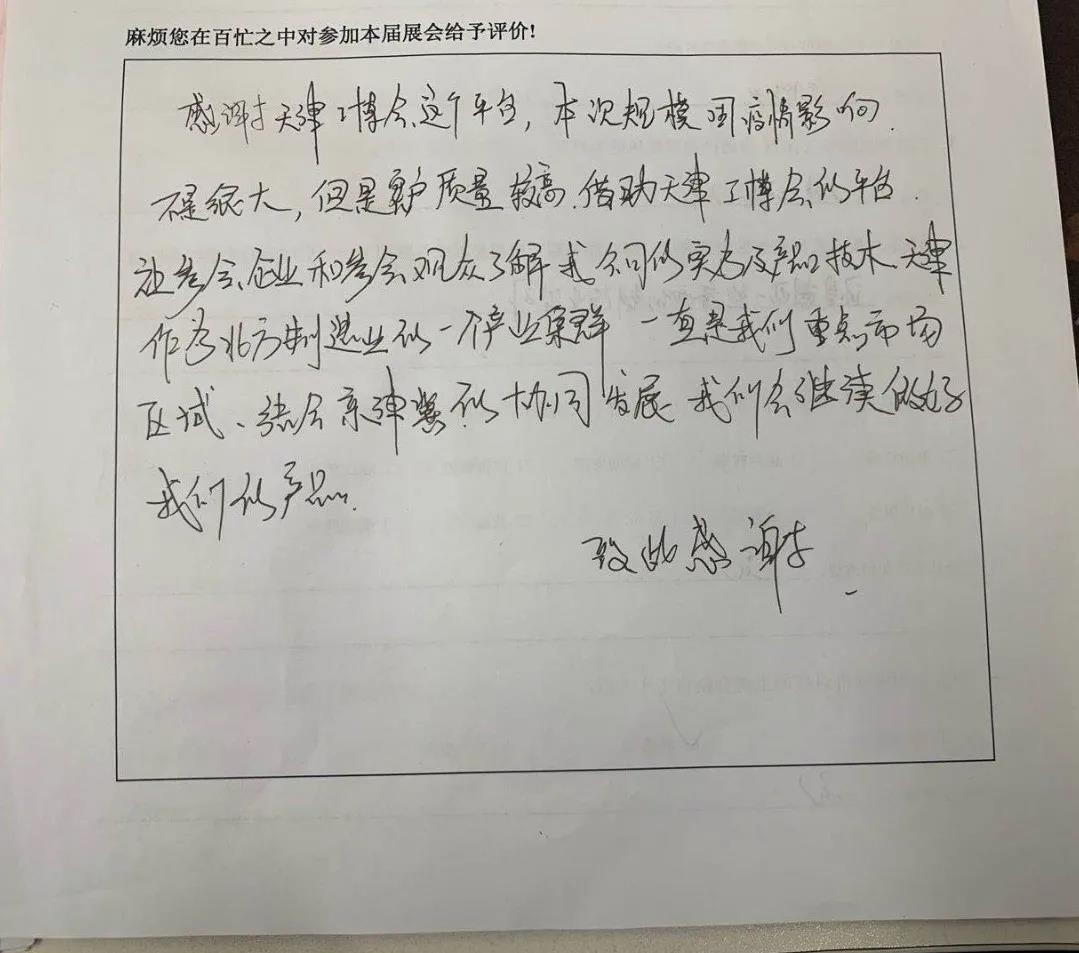 麻烦您在百忙之中对参加本届展会给予评价!
感谢天津工博会这个平台，本次规模因疫情影响.
不是很大，但是客户质量较高.借助天津工博会的平台.
让参会企业和参会观众了解我公司的实力及产品技术.天津
作为北方制造业的一个产业集群 一直是我们重点市场
区域、结合京津冀的协同发展 我们会继续做好
我们的产品.
致此感谢